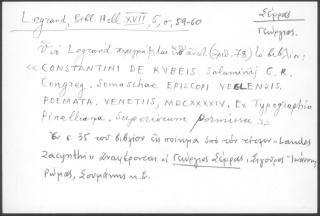 Legrand, Bibl. Hell. XVII, 5, σ. 59-60
Σέρρας
Γεώργιος.
Ὁ Legrand περιγράφει (ἀριθ. 78) τὸ βιβλίον:
« CONSTANTINI DE RVBEIS Salaminij C. R.
Congreg. Somaschae EPISCOPI VEGLENSIS,
POEMATA. VENETIIS, MDCXXXXIV. Ex Typographia
Pinelliana. Superiorum permissu ».
Ἐν σ. 35 τοῦ βιβλίου εἰς ποίημα ὑπὸ τὸν τίτλον « Laudes
Zacynthi » ἀναφέρονται οἱ Γεώργιος Σέρρας, Σιγοῦρος Ἰωάννης,
Ρώμας, Σουμάκης κ.ἄ.